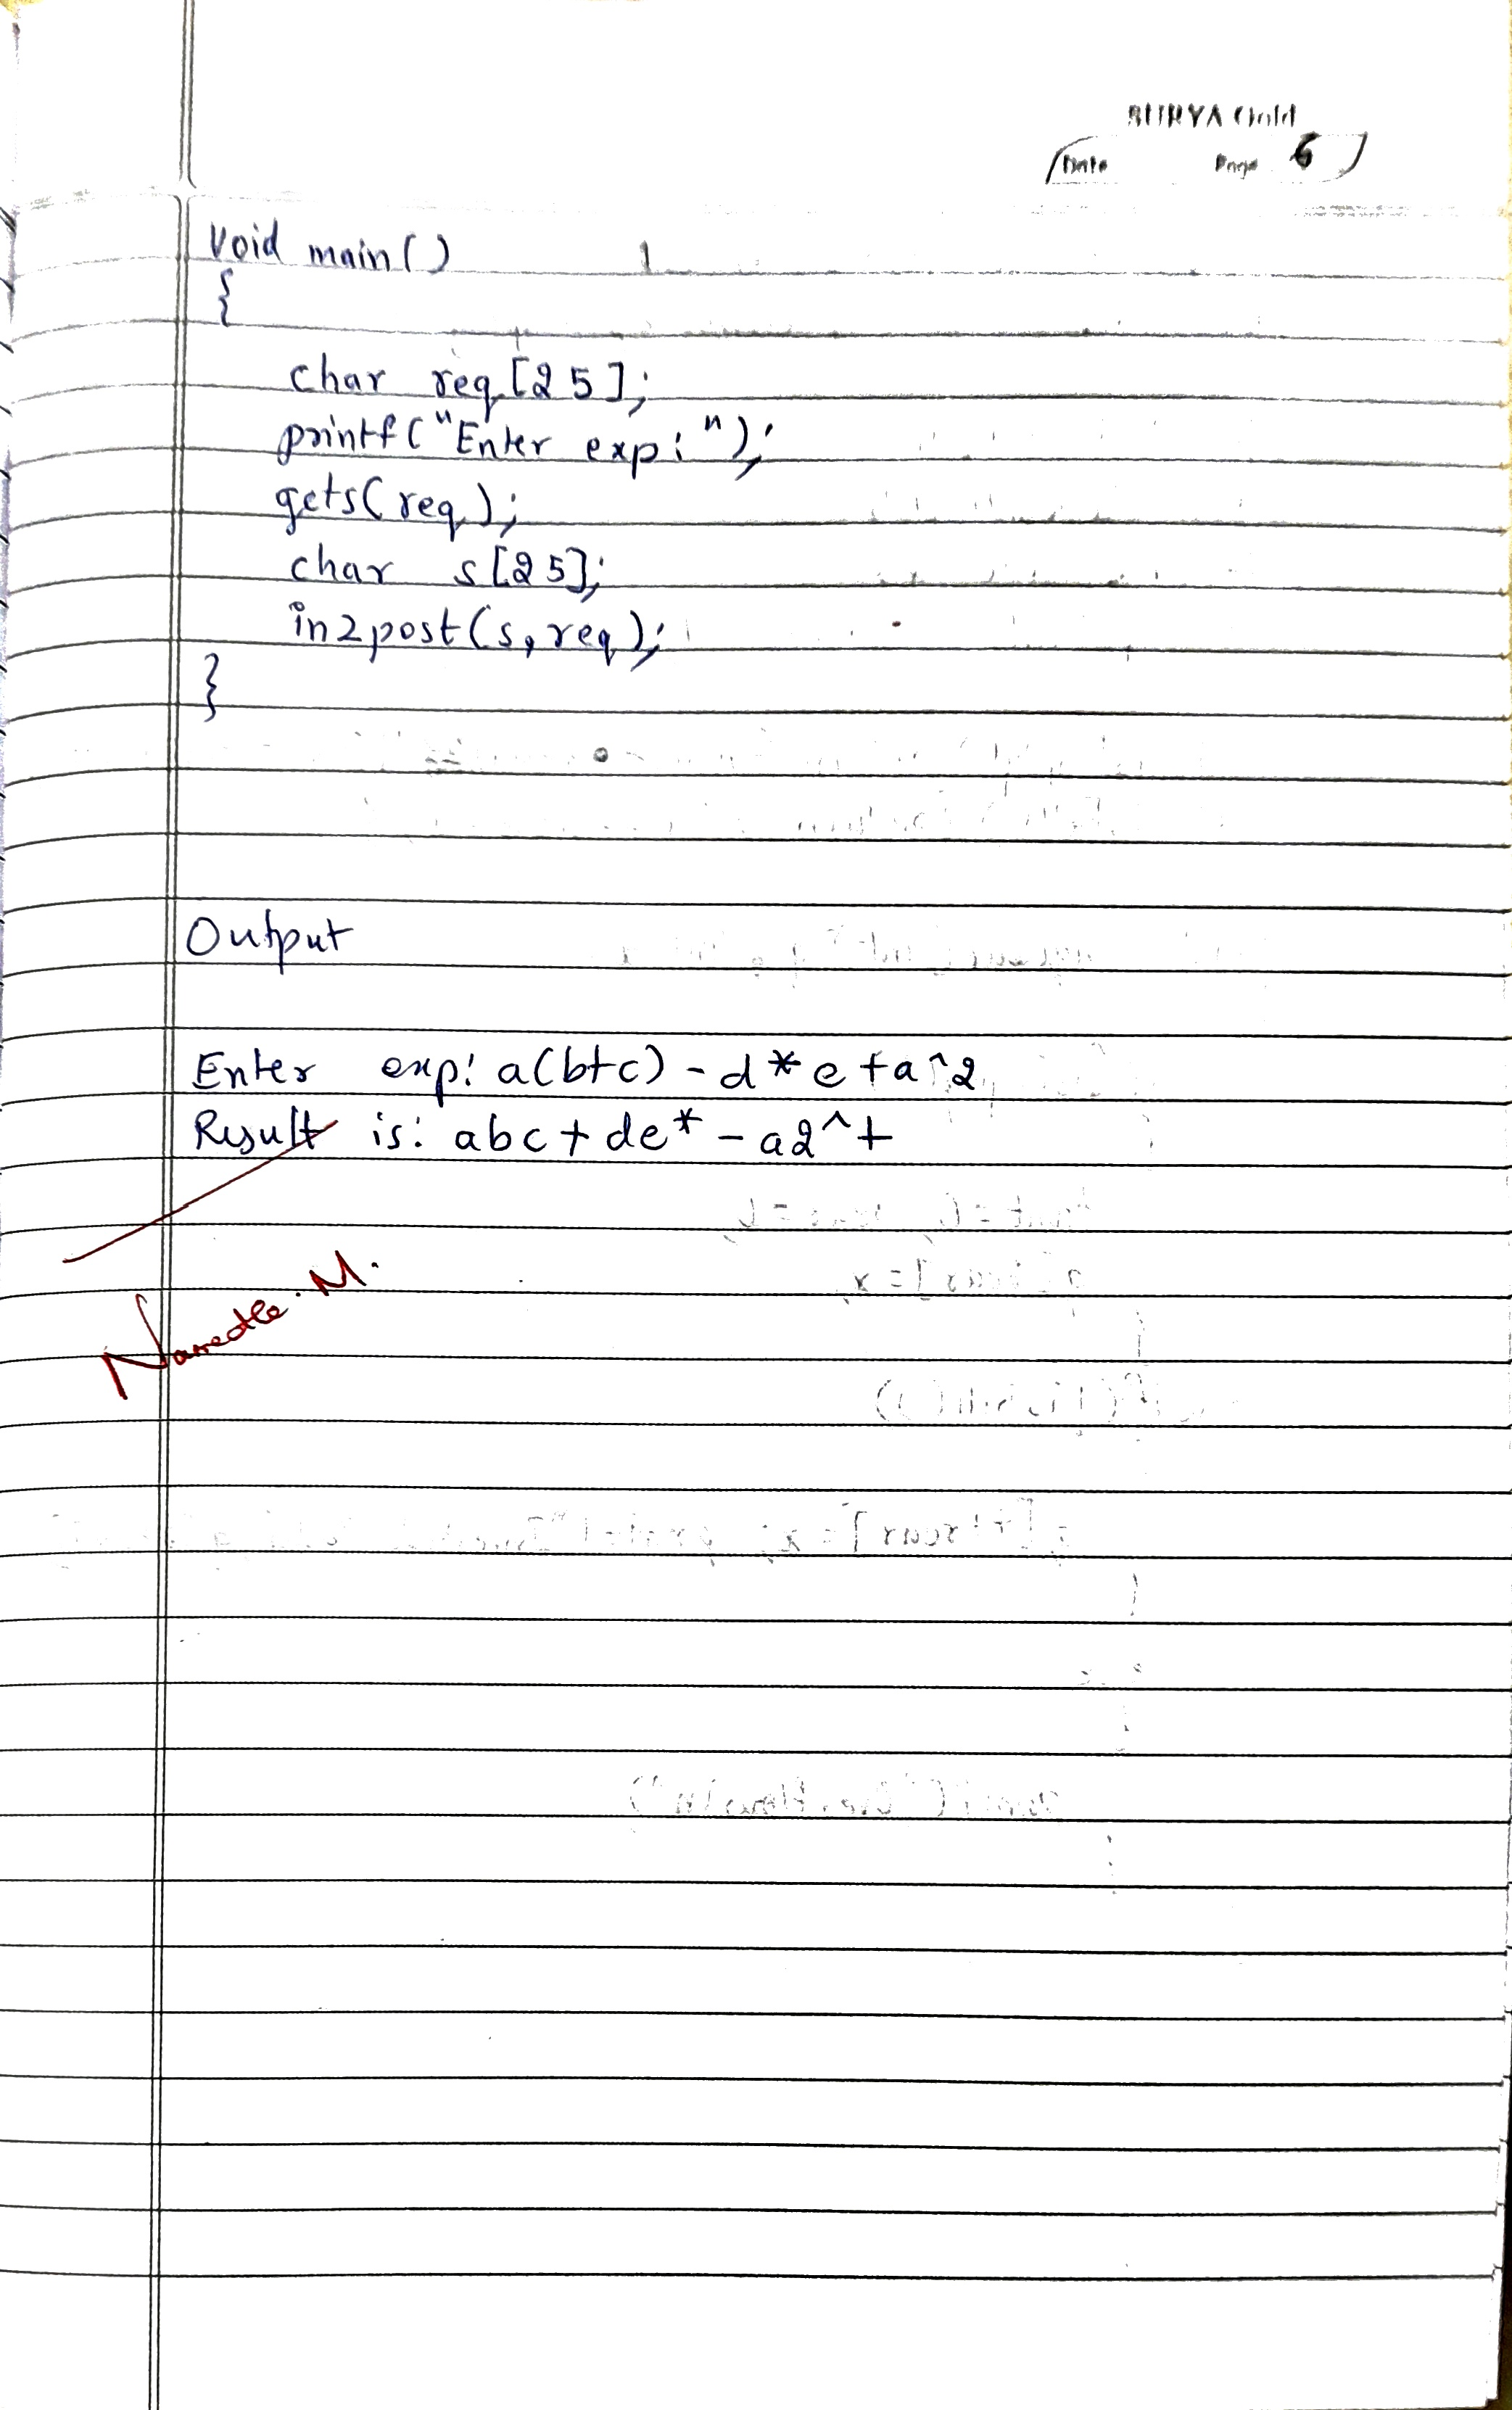 SURYA Gold
Date Page 6
void main()
{
char req[25];
printf("Enter exp: ");
gets(req);
char s[25];
in2post(s, req);
}
Output
Enter exp: a(b+c) - d * e + a ^ 2
Result is: abc + de* - a2^+
M.